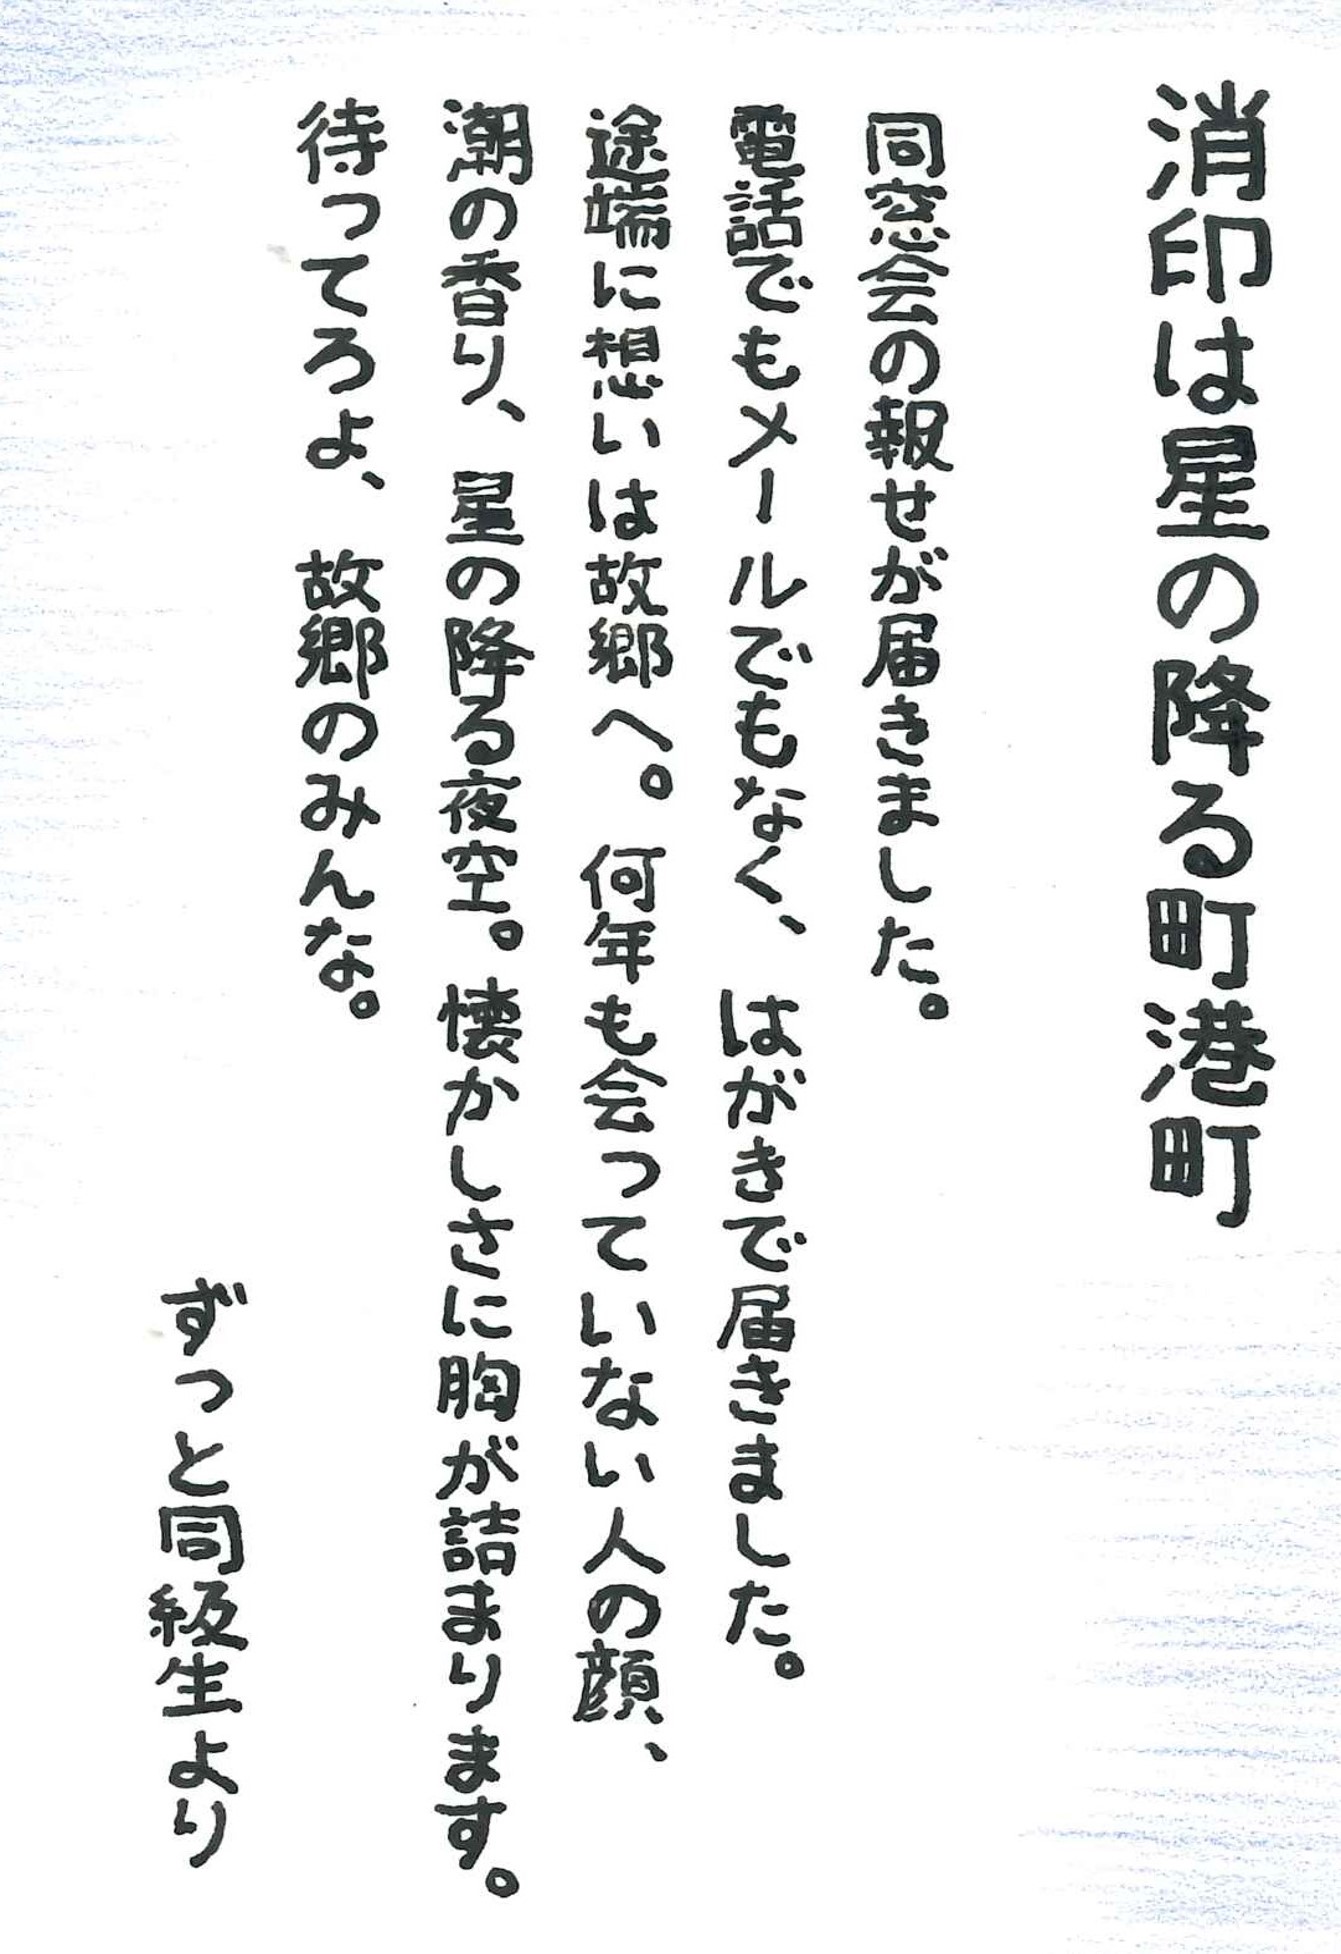 消印は星の降る町港町
同窓会の報せが届きました。
電話でもメールでもなく、はがきで届きました。
途端に想いは故郷へ。何年も会っていない人の顔、
潮の香り、星の降る夜空。懐かしさに胸が詰まります。
待ってろよ、故郷のみんな。
ずっと同級生より